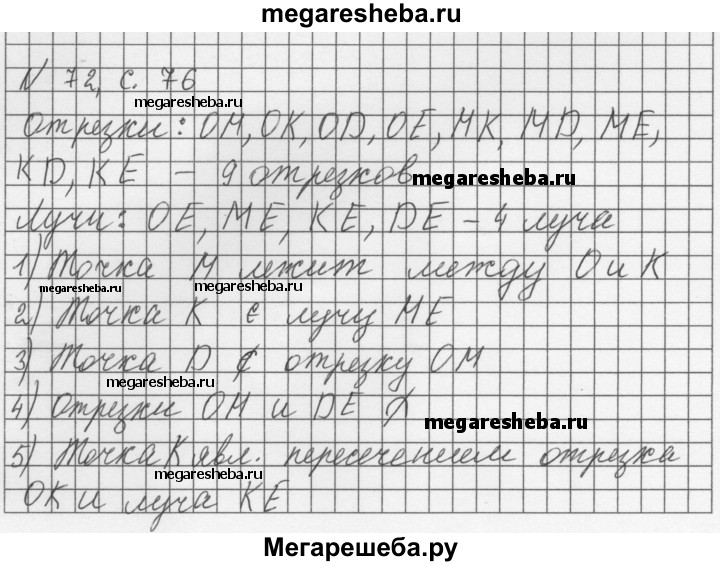 megaresheba.ru
N 72, с. 76
megaresheba.ru
Отрезки: ОМ, ОК, ОD, ОЕ, МК, МD, МЕ,
КD, КЕ – 9 отрезков
megaresheba.ru
Лучи: ОЕ, МЕ, КЕ, DЕ – 4 луча
1) Точка М лежит между О и К
megaresheba.ru
megaresheba.ru
2) Точка К є лучу МЕ
3) Точка D ∉ отрезку ОМ
megaresheba.ru
4) Отрезки ОМ и DE
megaresheba.ru
5) Точка К явл. пересечением отрезка
megaresheba.ru
ОК и луча КЕ
Мегарешеба.ру